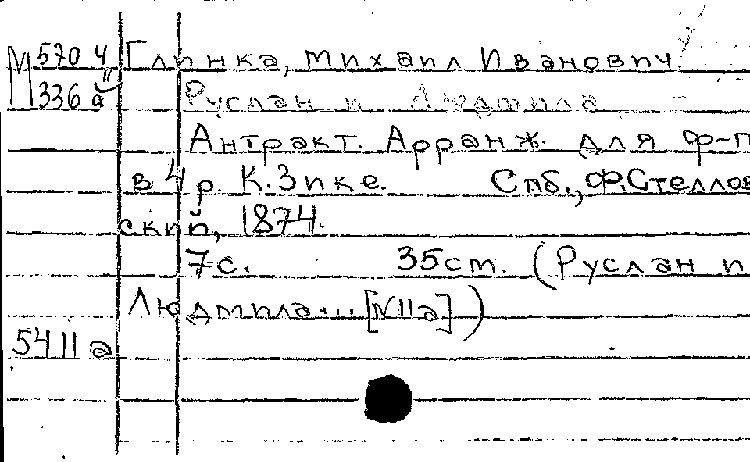 М 570 4 Глинка, Михаил Иванович
336 а Руслан и Людмила
Антракт. Арранж. для ф-п
в 4 р. К. Зике. Спб., Ф. Стеллов
ский, 1874.
7 с. 35 см. (Руслан и
Людмила... [N 11а])
5411 а